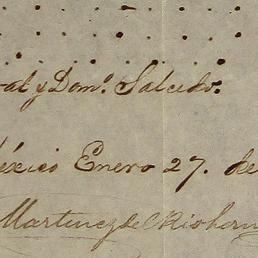 al y Dom.º Salcedo.
éxico Enero 27. de
Martinez de